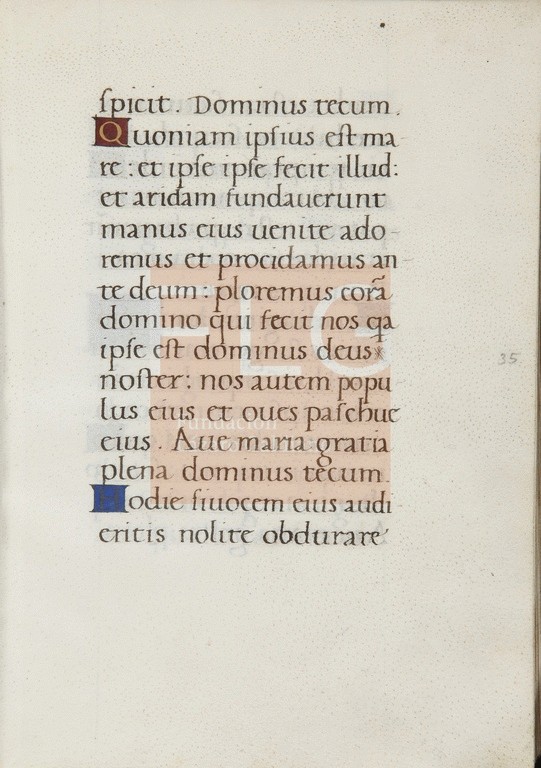 ſpicit. Dominus tecum.
Quoniam ipſius eſt ma
re: et ipſe ipſe fecit illud:
et aridam fundauerunt
manus eius uenite ado-
remus et procidamus an-
te deum: ploremus corã
domino qui fecit nos qa
ipſe eſt dominus deus
noſter: nos autem popu
lus eius et oues paſchue
eius. Aue maria gratia
plena dominus tecum.
Hodie ſiuocem eius audi
eritis nolite obdurare
35
FLG
Fundación